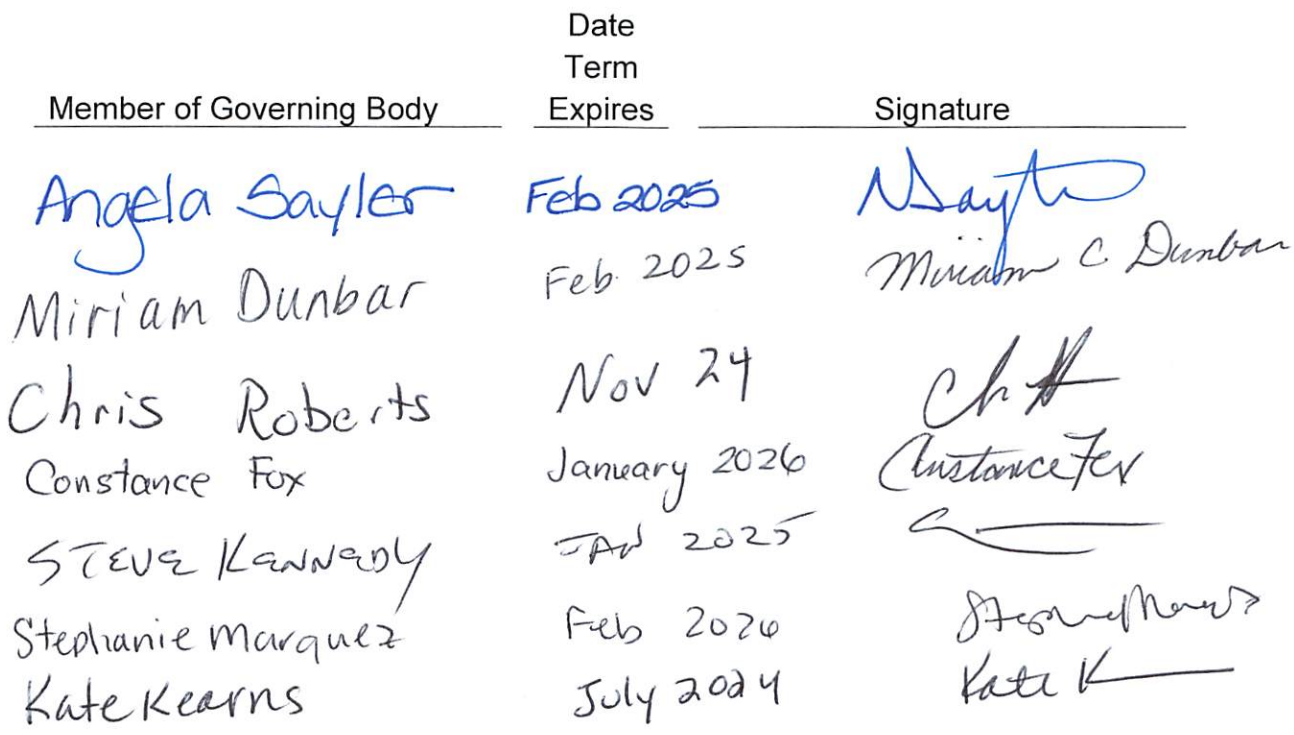 Date
Term
Member of Governing Body Expires Signature
Angela Sayler Feb 2025
Miriam Dunbar Feb. 2025 Miriam C Dunbar
Chris Roberts Nov 24
Constance Fox January 2026 Constance Fox
STEVE KENNEDY JAN 2025
Stephanie Marquez Feb 2026
Kate Kearns July 2024 Kate K